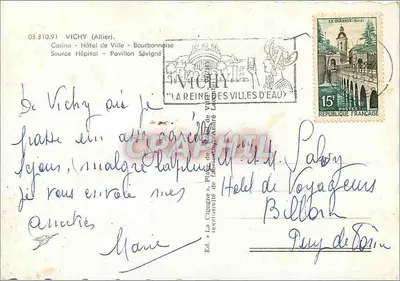 03.310.91 VICHY (Allier).
Casino - Hôtel de Ville - Bourbonnaise
Source Hôpital - Pavillon Sévigné
VICHY
"LA REINE DES VILLES D'EAU"
LE QUESNOY (Nord)
15F
REPUBLIQUE FRANÇAISE
De Vichy où je
passe un agréable
sejour, malgré la pluie
je vous envoie mes
amitiés
Marie
Ed. "La Cigogne",
M et M
Hotel de Voyageurs
Billom
Puy de Dôme
CPARAMA